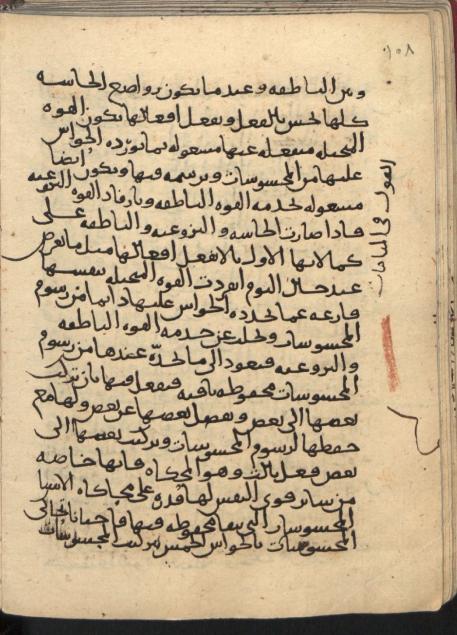 ١٠٨
وبين الناطقه وعندما تكون رواضع الحاسه
كلها تحس بالفعل وتفعل افعالها تكون القوه
المتخيله منفعله عنها مشغوله بما تورده الحواس
عليها من المحسوسات وترسمه فيها وتكون ايضا
مشغوله بخدمه القوه الناطقه وبارفاد القوه النزوعيه
فاذا صارت الحاسه والنزوعيه والناطقه على
كمالاتها الاول بالا تفعل افعالها مثل ما يعرض
عند حال النوم انفردت القوه المتخيله بنفسها
فارغه عما تجدده الحواس عليها دايما من رسوم
المحسوسات وتخلت عن خدمه القوه الناطقه
والنزوعيه فتعود الى ما تجده عندها من رسوم
المحسوسات محفوظه باقيه فتفعل فيها بان تركب
بعضها الى بعض وتفصل بعضها عن بعض ولها مع
حفظها لرسوم المحسوسات وتركيب بعضها الى
بعض فعل ثالث وهو المحاكاه فانها خاصه
من ساير قوى النفس لها قدره على محاكاه الاشيا
المحسوسات التي تبقى محفوظه فيها فاحيانا تحاكي
المحسوسات بالحواس الخمس بتركيب المحسوسات
القول في المنامات